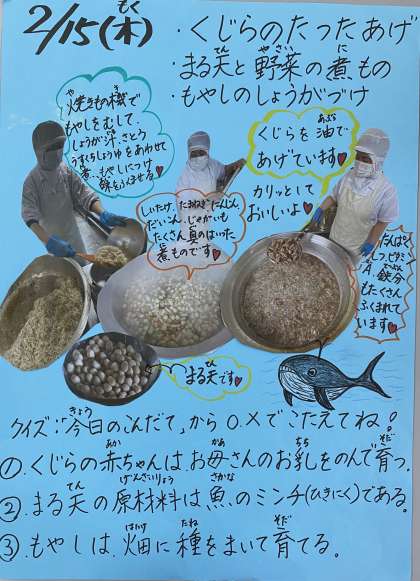 2/15(木)
・くじらのたつたあげ
・まる天と野菜の煮もの
・もやしのしょうがづけ
焼きもの機で
もやしをむして、
しょうが汁、さとう
うすくちしょうゆをあわせて
煮、もやしにつけ
味をふくませる♥
しいたけ、たまねぎ、にんじん
だいこん、じゃがいも
たくさん具のはいった
煮ものです♥
くじらを油で
あげています♥
カリッとして
おいしいよ♥
たんぱく
しつ、ビタミン
A、鉄分
もたくさん
ふくまれて
います♥
まる天です♥
クイズ:「今日のこんだて」から○、×でこたえてね!
①.くじらの赤ちゃんは、お母さんのお乳をのんで育つ。
②.まる天の原材料は魚のミンチ(ひきにく)である。
③.もやしは、畑に種をまいて育てる。